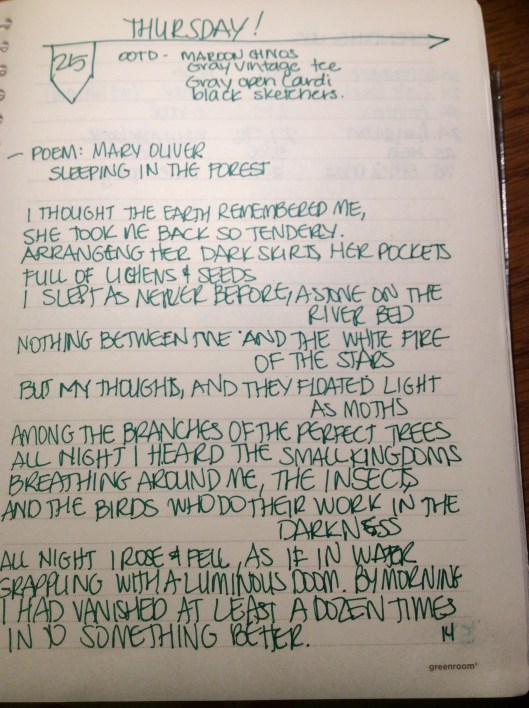 THURSDAY!
25
OOTD - MAROON CHINOS
Gray vintage tee
Gray open Cardi
black sketchers.
- POEM: MARY OLIVER
SLEEPING IN THE FOREST
I THOUGHT THE EARTH REMEMBERED ME,
SHE TOOK ME BACK SO TENDERLY.
ARRANGING HER DARK SKIRTS HER POCKETS
FULL OF LICHENS & SEEDS
I SLEPT AS NEVER BEFORE, A STONE ON THE
RIVER BED
NOTHING BETWEEN ME AND THE WHITE FIRE
OF THE STARS
BUT MY THOUGHTS, AND THEY FLOATED LIGHT
AS MOTHS
AMONG THE BRANCHES OF THE PERFECT TREES
ALL NIGHT I HEARD THE SMALL KINGDOMS
BREATHING AROUND ME, THE INSECTS
AND THE BIRDS WHO DO THEIR WORK IN THE
DARKNESS
ALL NIGHT I ROSE & FELL, AS IF IN WATER
GRAPPLING WITH A LUMINOUS DOOM. BY MORNING
I HAD VANISHED AT LEAST A DOZEN TIMES
IN TO SOMETHING BETTER.
14
greenroom®